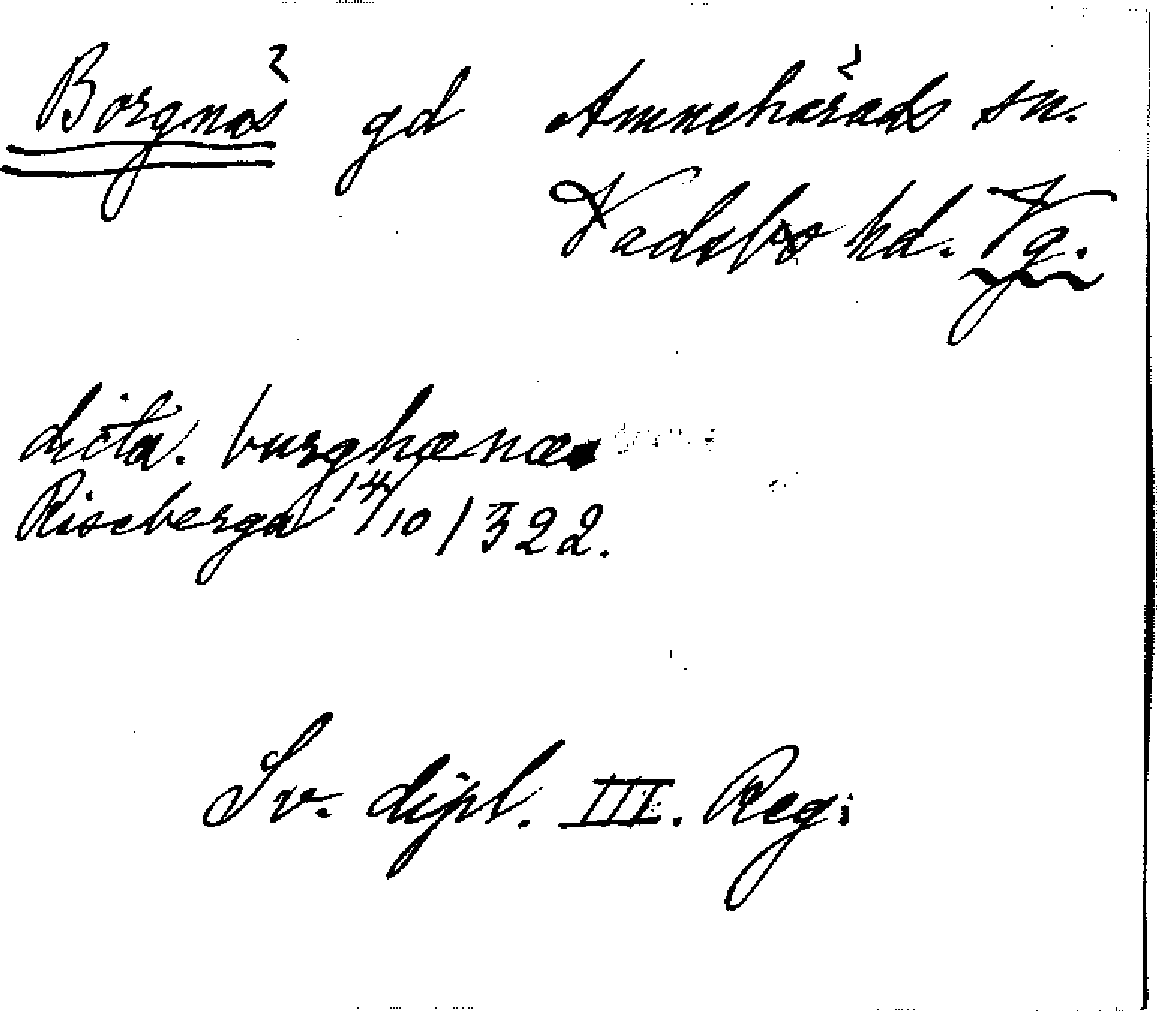 Borgnäs gd Amnehärads sn.
Vadsbo hd. Vg.
dicta. burghænæs
Riseberga 14/10 1322.
Sv. dipl. III. Reg: